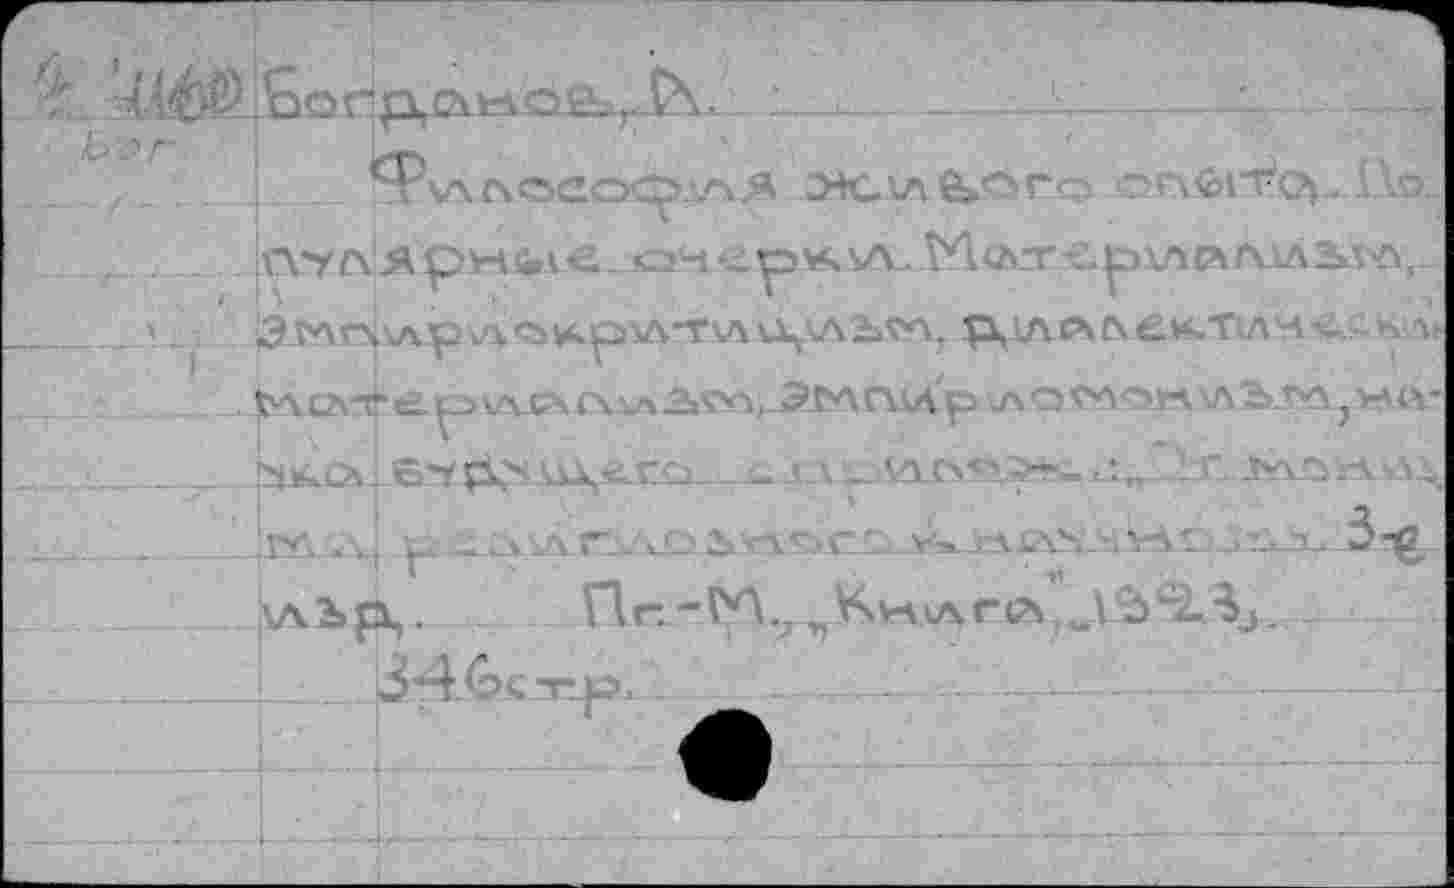 Богданов, А.
Бог
Философия живого опыта. По
пулярные очерки. Материализм,
Эмпириокритицизм, диалектическ.
материализм, эмпириомонизм, на-
ука будущего с прилож.: „От мони
зма религиозного к научному". 3-е
изд. Пг.-М., „Книга", 1923,
346 стр.